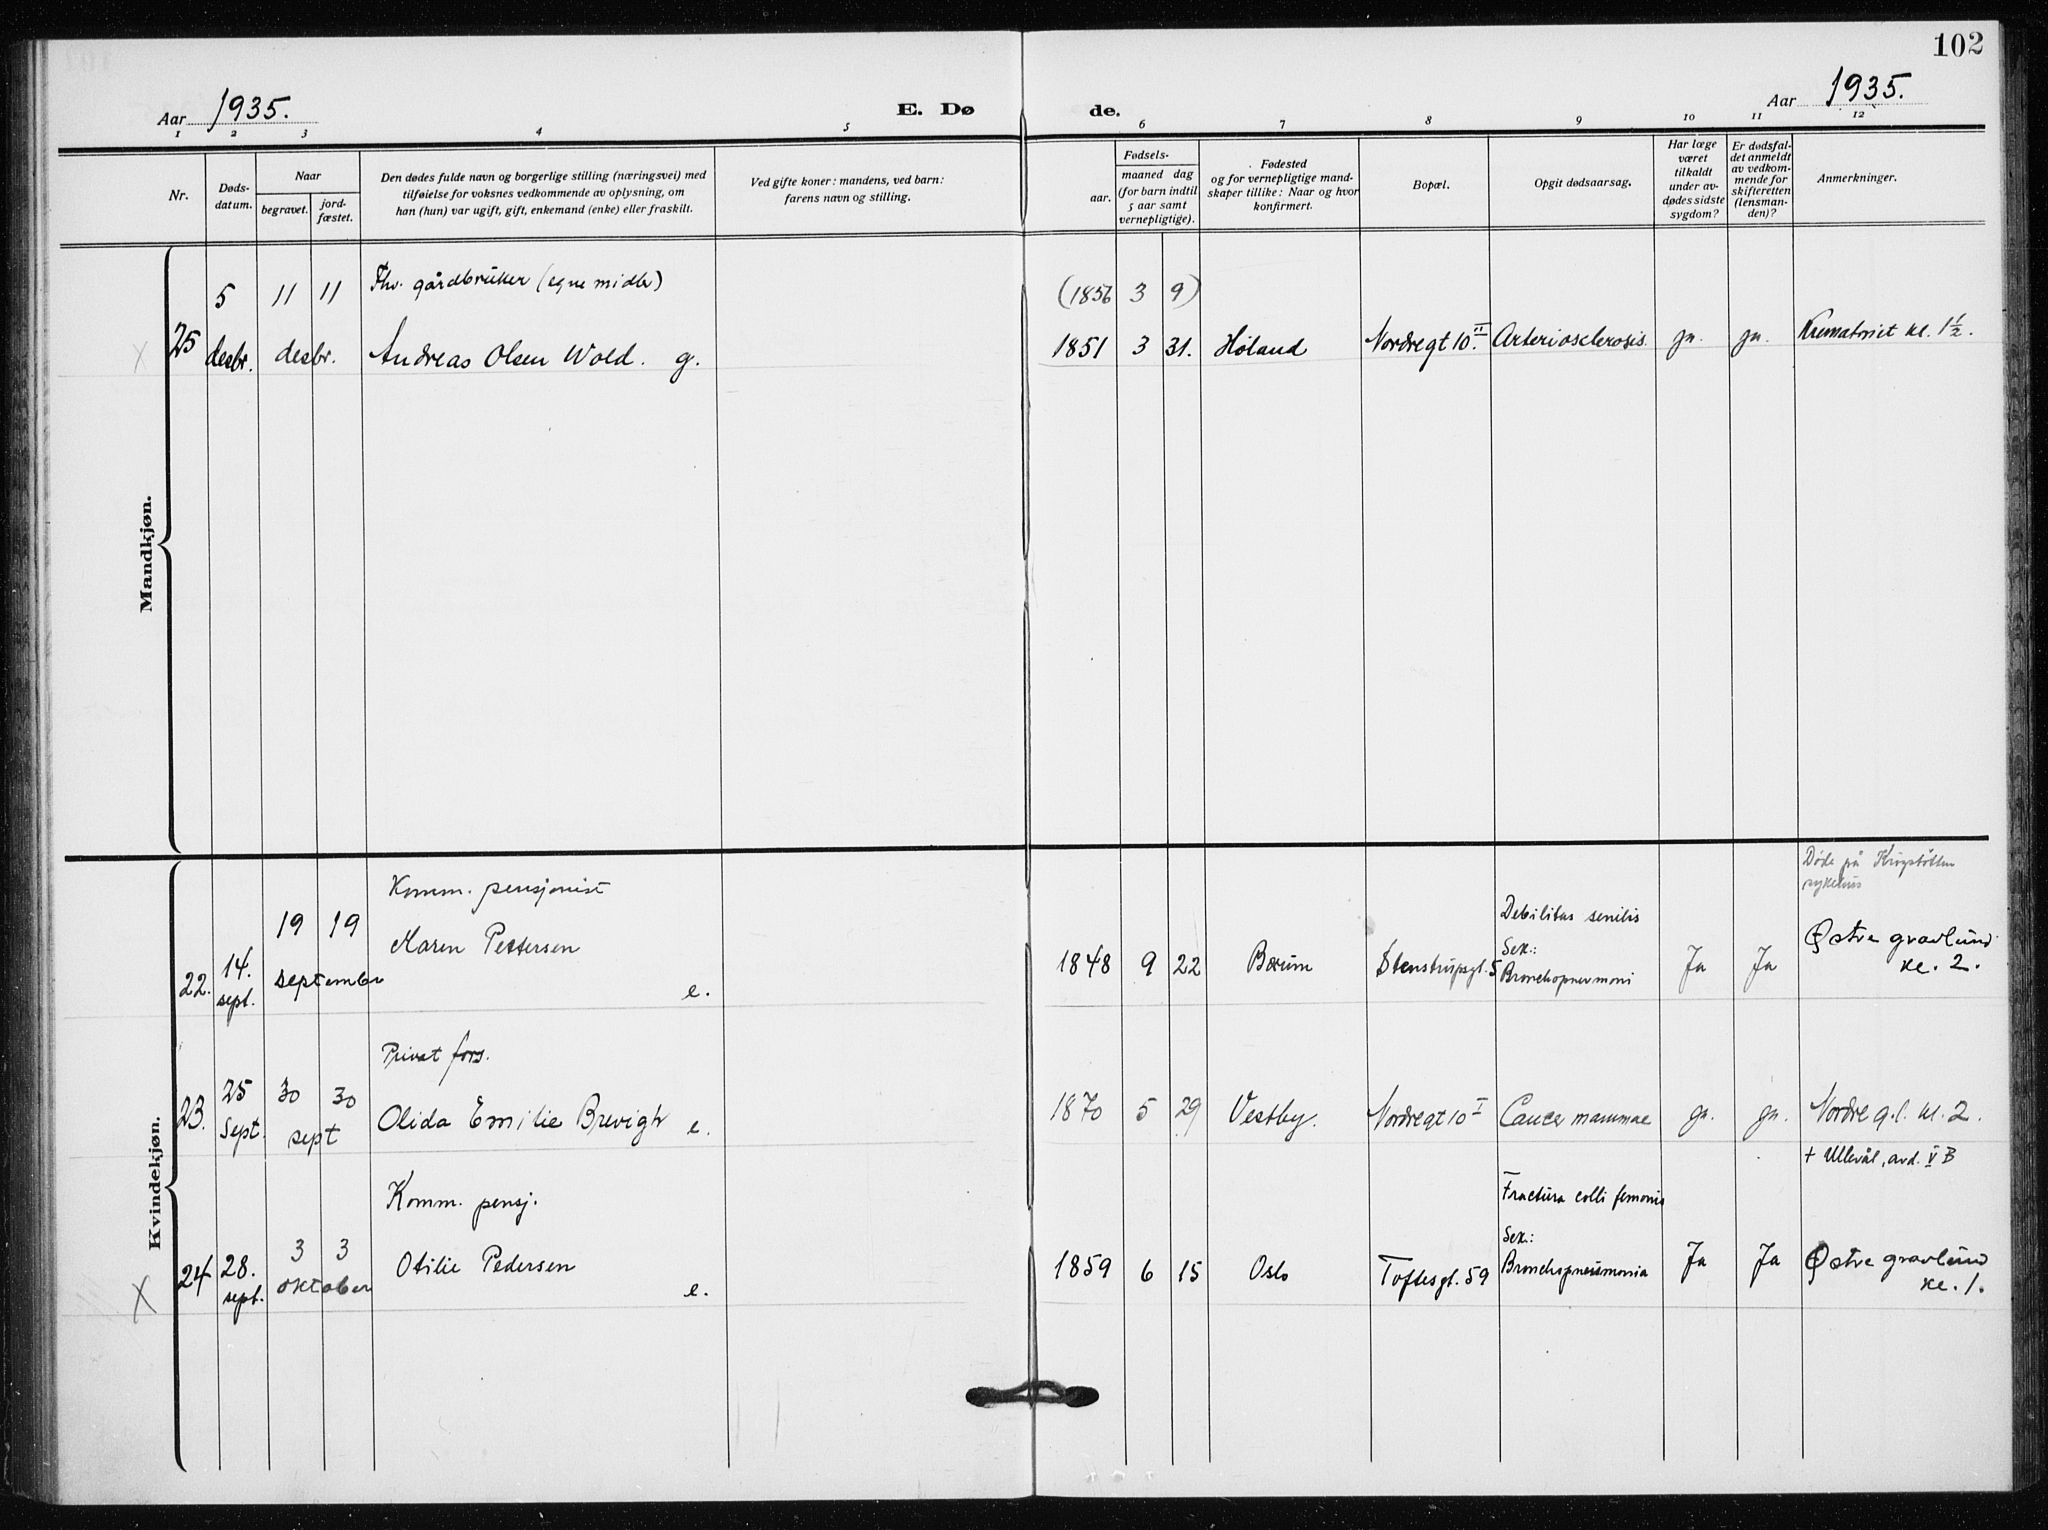 102
Aar 1935.
E. Dø de.
Aar 1935.
1 2 3 4 5 6 7 8 9 10 11 12
Nr.
Døds-
datum.
Naar
begravet.
jord-
fæstet.
Den dødes fulde navn og borgerlige stilling (næringsvei) med
tilføielse for voksnes vedkommende av oplysning, om
han (hun) var ugift, gift, enkemand (enke) eller fraskilt.
Ved gifte koner: mandens, ved barn:
farens navn og stilling.
Fødsels-
aar.
maaned dag
(for barn indtil
5 aar samt
vernepligtige).
Fødested
og for vernepligtige mand-
skaper tillike: Naar og hvor
konfirmert.
Bopæl.
Opgit dødsaarsag.
Har læge
været
tilkaldt
under av-
dødes sidste
sygdom?
Er dødsfal-
det anmeldt
av vedkom-
mende for
skifteretten
(lensman-
den)?
Anmerkninger.
Mandkjøn.
5 11 11 Fhv. gårdbruker (egne midler) (1856 3 9)
X 25 desbr. desbr. Andreas Olsen Wold. g. 1851 3 31. Høland Nordregt 10 II. Arteriosclerosis. ja. ja. Krematoriet kl. 1 1/2.
Kvindekjøn.
Døde på
sykehus
Komm. pensjonist
19 19 Debilitas senilis
22. 14. sept. september Maren Pettersen e. 1848 9 22 Bærum Stenstrupsgt. 5 Sek.: Bronchopnevmoni Ja Ja Østre gravlund kl. 2.
Privat fors.
23. 25 Sept. 30 30 sept Olida Emilie Brevigh e. 1870 5 29 Vestby. Nordregt 10 I Cancer mammae ja. ja. Nordre g.l. kl. 2.
+ Ullevål, avd. V B
Komm. pensj. Fractura colli femoris
X 24 28. sept. 3 3 oktober Otilie Pedersen e. 1859 6 15 Oslo Toftesgt. 59 Sek.: Bronchopneumonia Ja Ja Østre gravlund kl. 1.